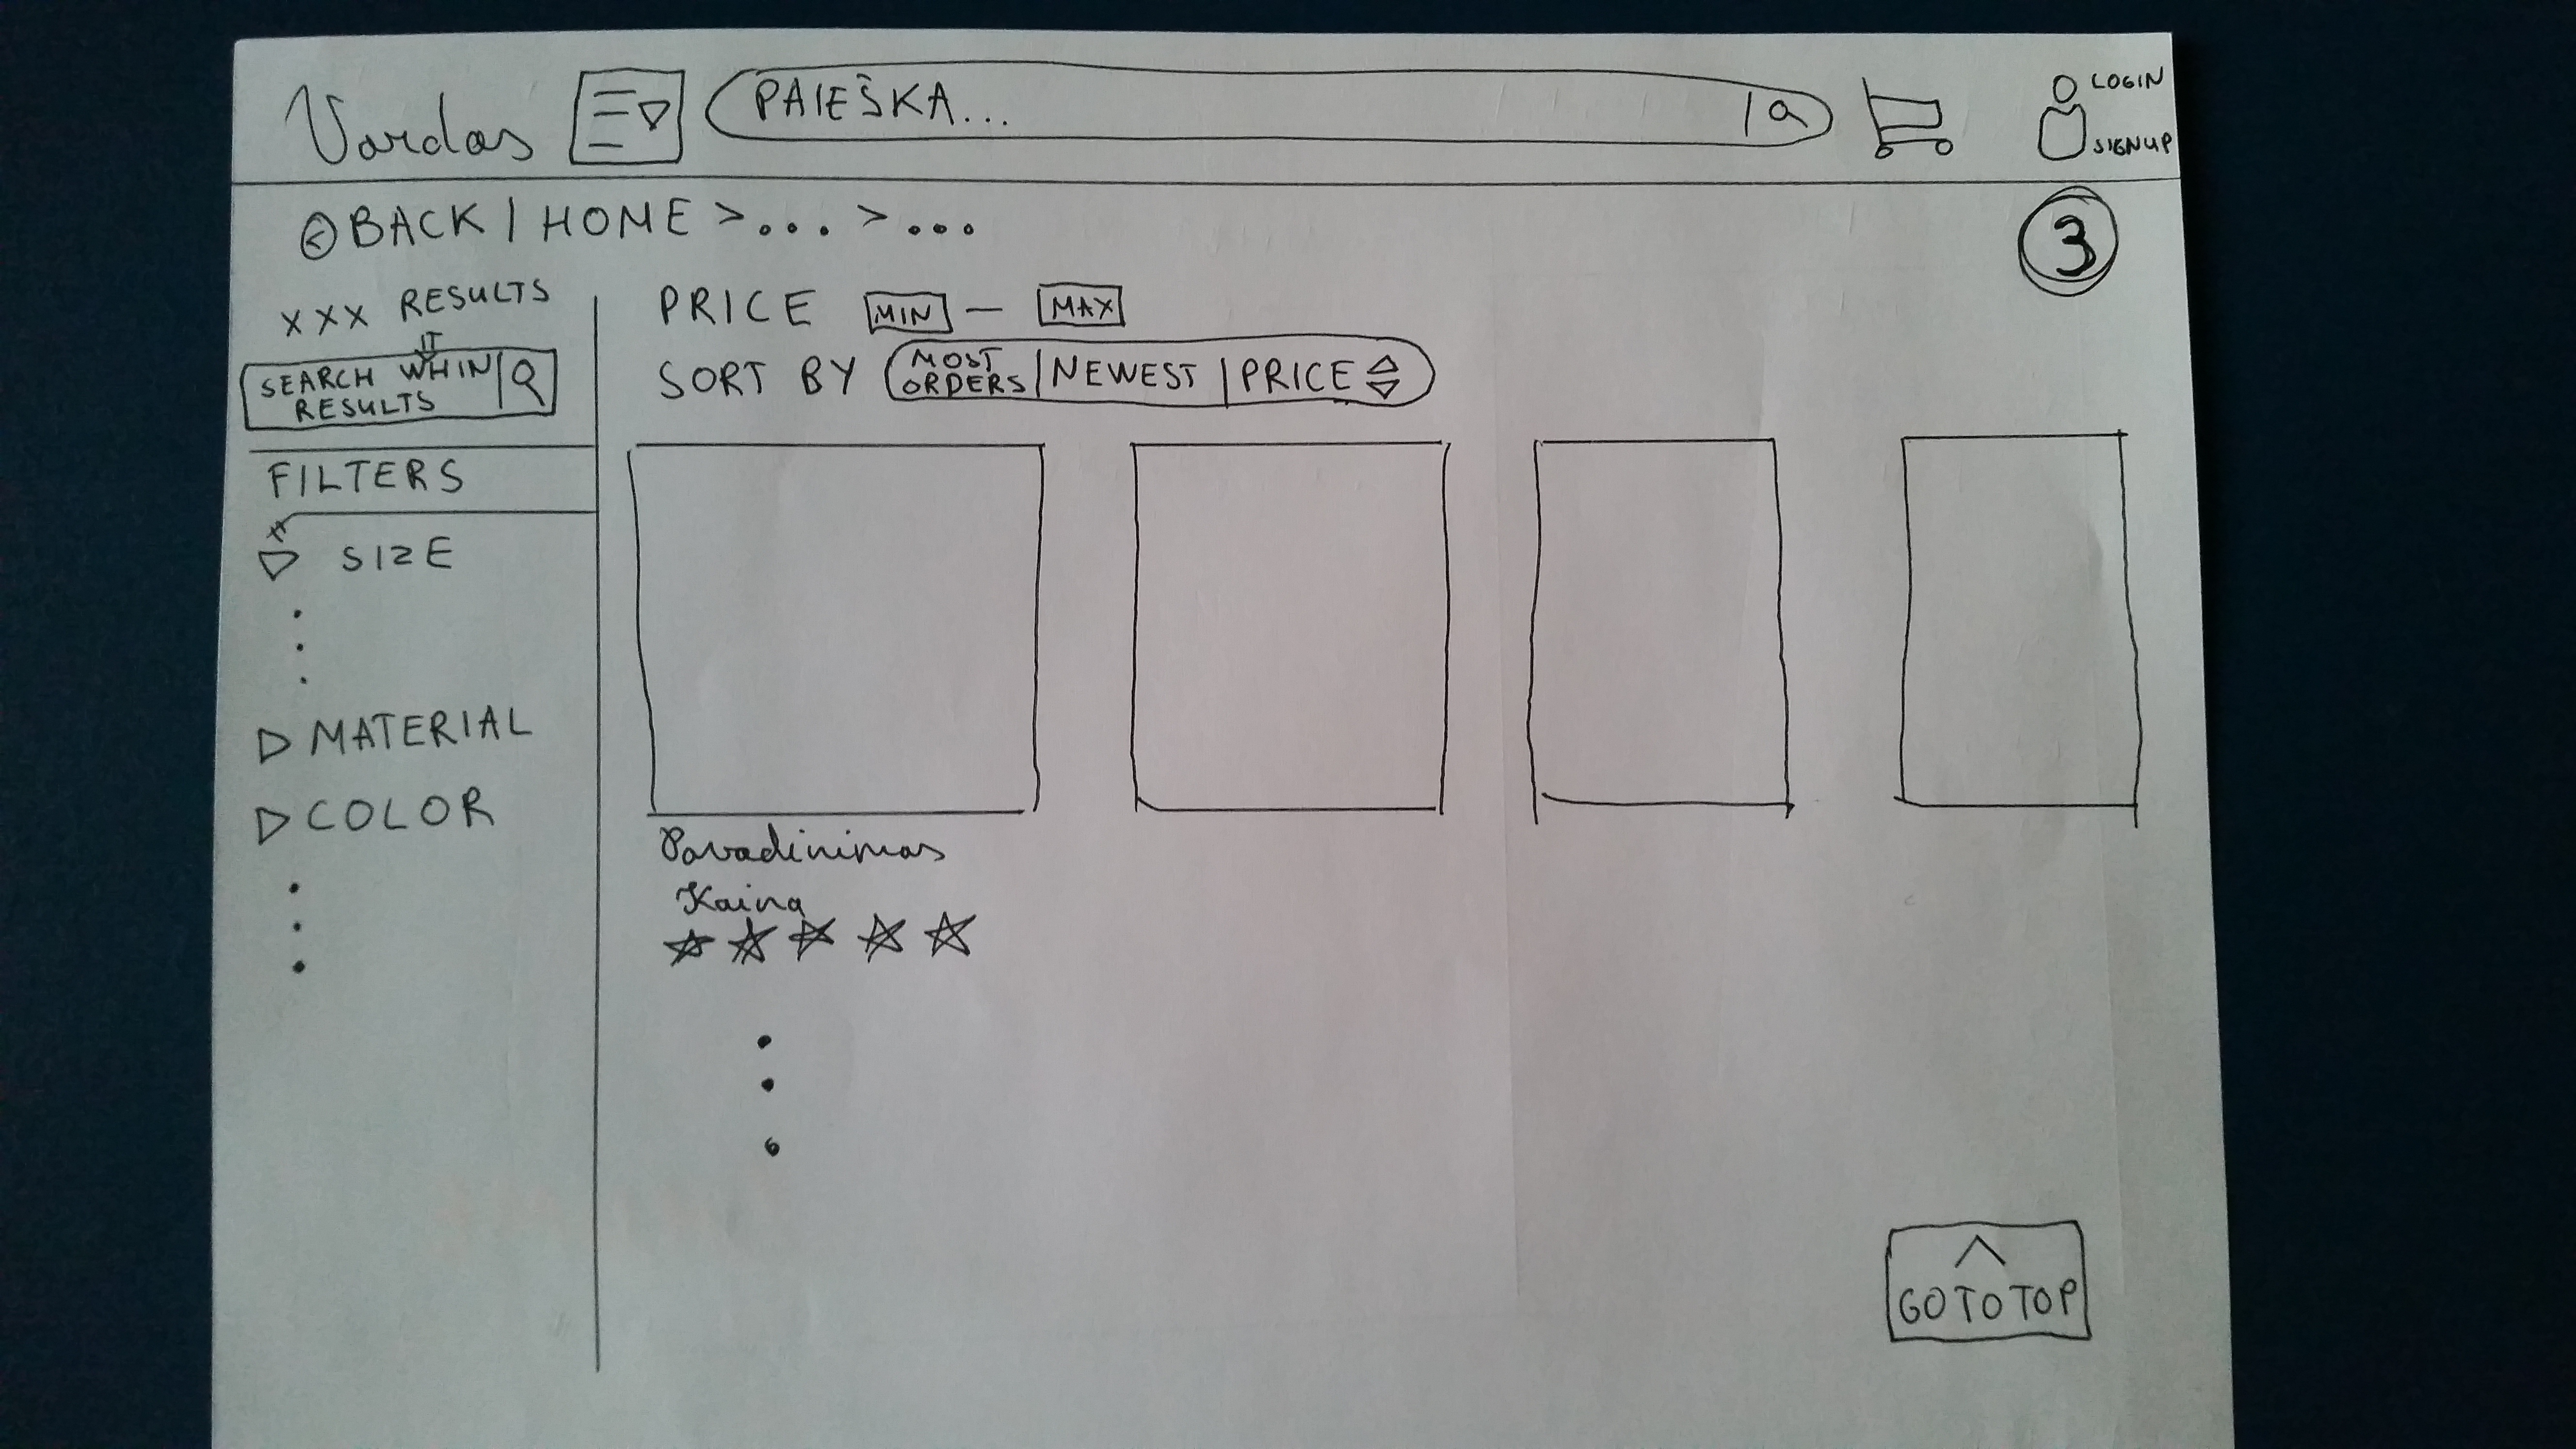 Vardas
PAIEŠKA...
LOGIN
SIGNUP
BACK | HOME > ... > ...
3
XXX RESULTS
SEARCH WITHIN
RESULTS
FILTERS
SIZE
MATERIAL
COLOR
PRICE MIN — MAX
SORT BY MOST ORDERS | NEWEST | PRICE
Pavadinimas
Kaina
GO TO TOP